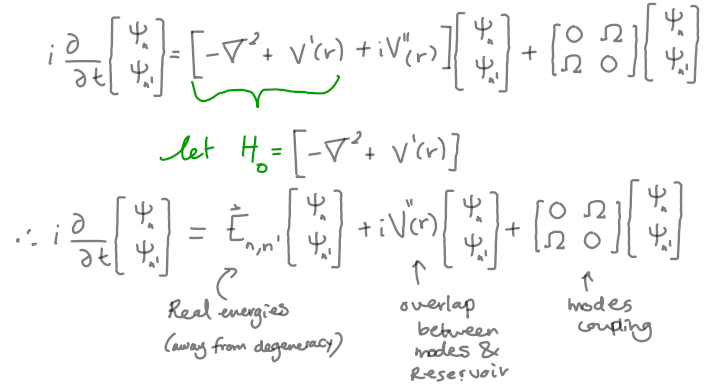 i ∂/∂t [Ψₙ Ψₙ'] = [-∇² + V'(r) + iV''(r)] [Ψₙ Ψₙ'] + [0 Ω Ω 0] [Ψₙ Ψₙ']
let H₀ = [-∇² + V'(r)]
∴ i ∂/∂t [Ψₙ Ψₙ'] = E⃗ₙ,ₙ' [Ψₙ Ψₙ'] + iV''(r) [Ψₙ Ψₙ'] + [0 Ω Ω 0] [Ψₙ Ψₙ']
Real energies
(away from degeneracy)
overlap
between
modes &
Reservoir
modes
coupling